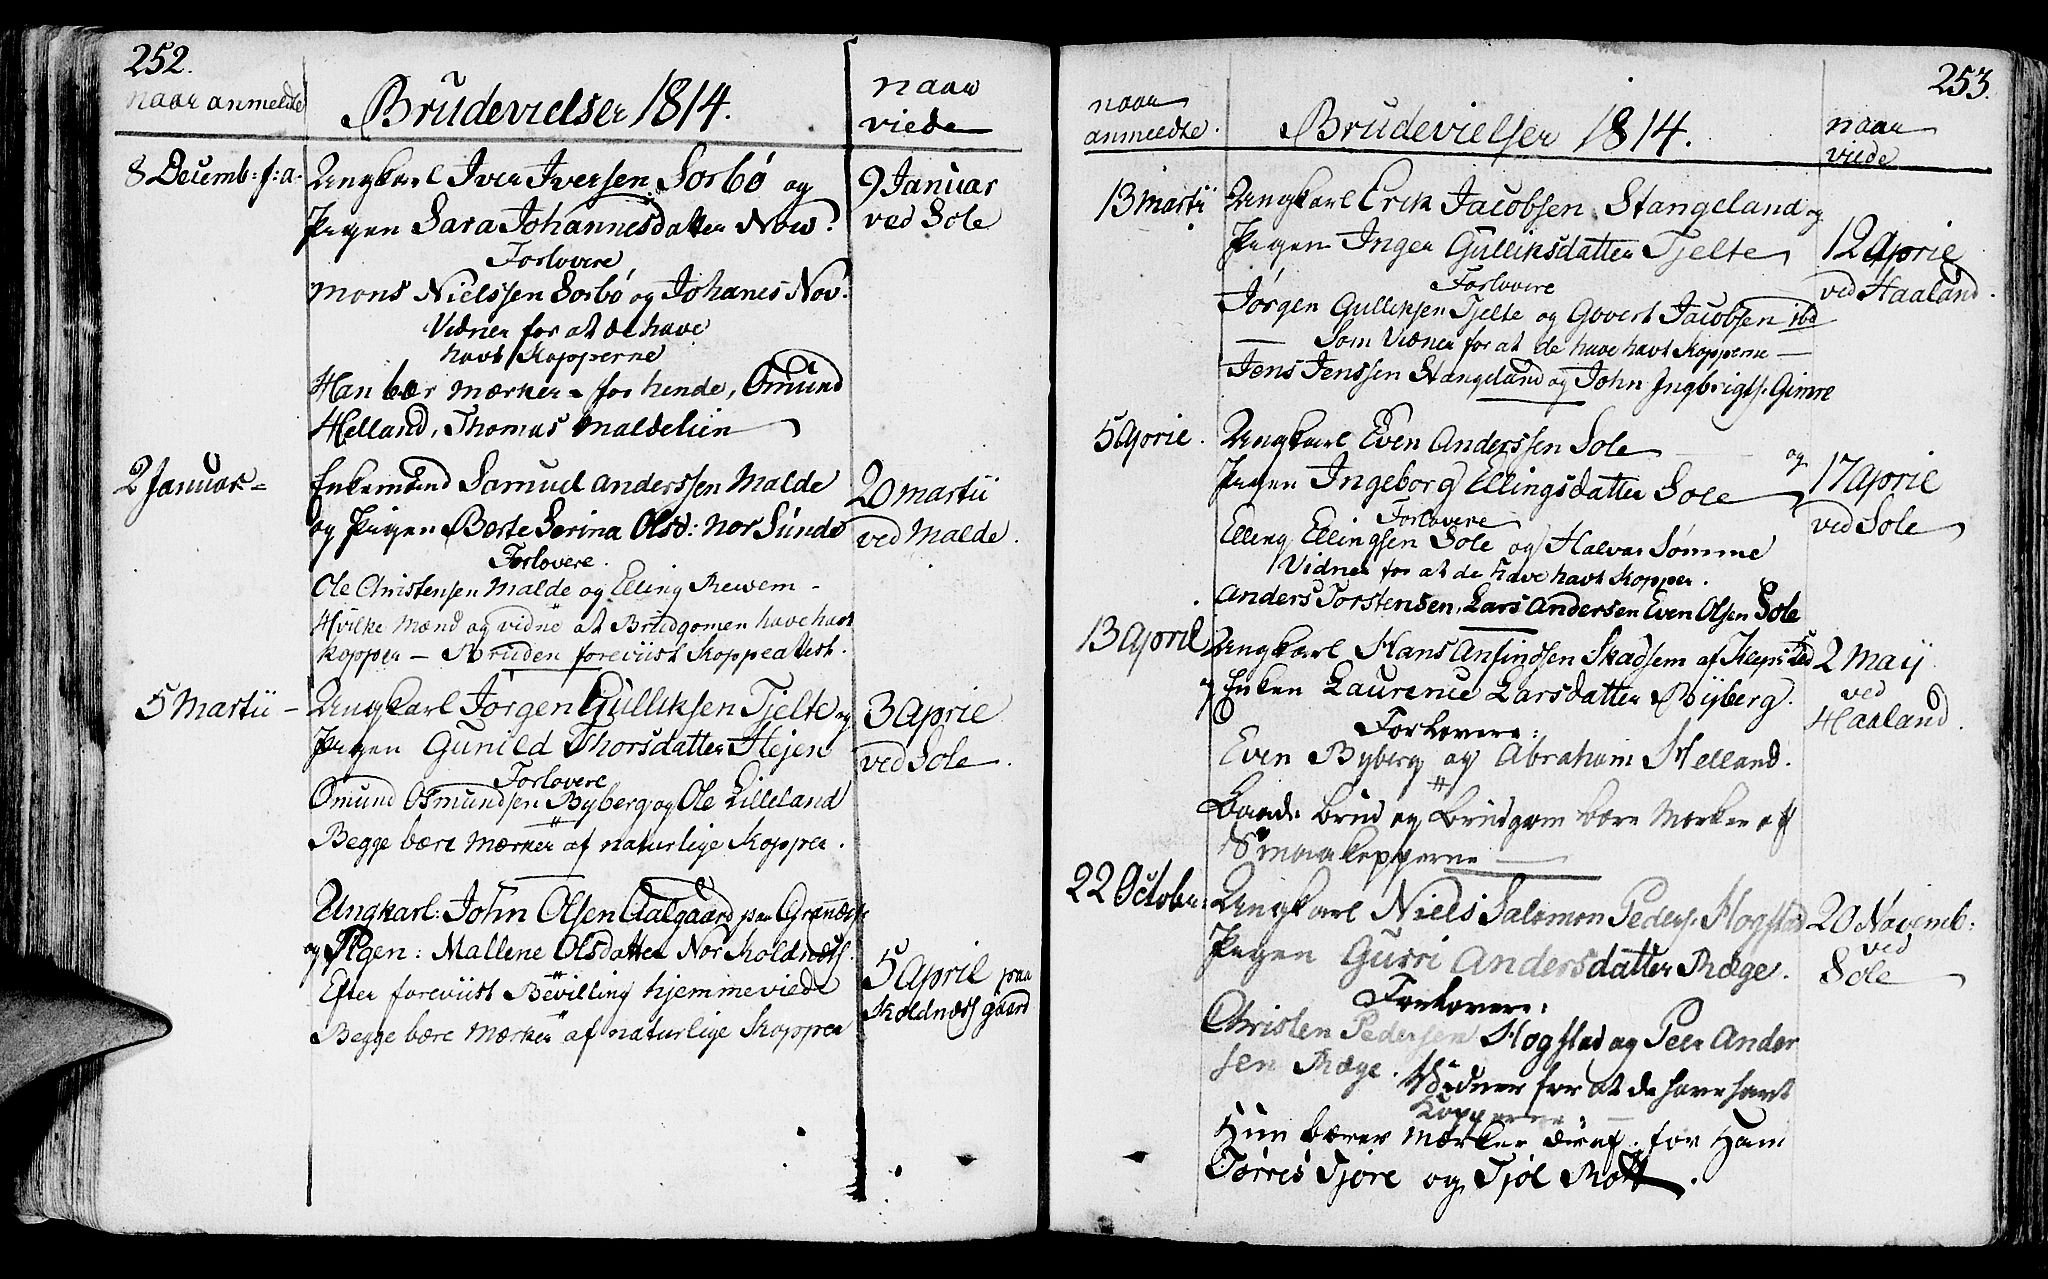 252.
naar anmeldte
Brudevielser 1814.
naar
viede
8 Decemb: f: a.
Ungkarl Iver Iversen Sorbö og
Pigen Sara Johannesdatter Now:
Forlovere
Mons Nielssen Sorbö og Johanes Nov:
Vidner for at de have
havt Kopperne
Han bær mærker - for hende, Omund
Helland, Thomas Maldelien
9 Januar
ved Sole
2 Januar
Enkemand Samuel Anderssen Malde
og Pigen Berte Serina Olsd: Nor Sunde
Forlovere.
Ole Christensen Malde og Elling Rewem -
Hvilke Mænd og vidne at Brudgomen have havt
kopper - Bruden foreviist Koppeattest.
20 Martii
ved Malde.
5 Martii -
Ungkarl Jörgen Gulliksen Tjelte og
Pigen Gunild Thorsdatter Hejen
Forlovere
Omund Osmundsen Byberg og Ole Lilleland
Begge bære mærker af naturlige Kopper.
3 April
ved Sole.
Ungkarl: John Olsen Aalgaard paa
og Pigen: Mallene Olsdatter Nor Koldnæs.
Efter foreviist Bevilling hjemmeviede
Begge bære Mærker af naturlige Kopper
5 April paa
Koldnæs gaard
253.
naar
anmeldte.
Brudevielser 1814.
naar
viede
13 Martii
Ungkarl Erik Jacobsen Stangeland og
Pigen Inger Gulliksdatter Tjelte
Forlovere
Jörgen Gulliksen Tjelte og Govert Jacobsen ibd
Som Vidner for at de have havt Kopperne -
Jens Jenssen Stangeland og John Ingbrigts. Gimre
12 April
ved Haaland.
5 April.
Ungkarl Even Anderssen Sole og
Pigen Ingeborg Ellingsdatter Sole
Forlovere
Elling Ellingsen Sole og Halvar Sömme
Vidner for at de have havt Kopper.
Anders Torstensen, Lars Andersen Even Olsen Sole
17 April
ved Sole
13 April
Ungkarl Hans Ansindsen Skadsem af Kleps
og Enken Laurence Larsdatter Byberg.
Forlovere:
Even Byberg og Abraham Helland.
Baade Brud og Brudgom bære Mærker af
Smaakopperne
2 Maij
ved
Haaland.
22 October
Ungkarl Niels Salomon Peders. Hogstad
Pigen Gurri Andersdatter Ræge.
Forlovere:
Christen Pedersen Hogstad og Peer Ander
sen Ræge. Vidner for at de have havt
Kopperne
Hun bærer Mærker deraf. for Ham
Törres Tjore og Tjöl Rott.
20 Novemb:
ved
Sole